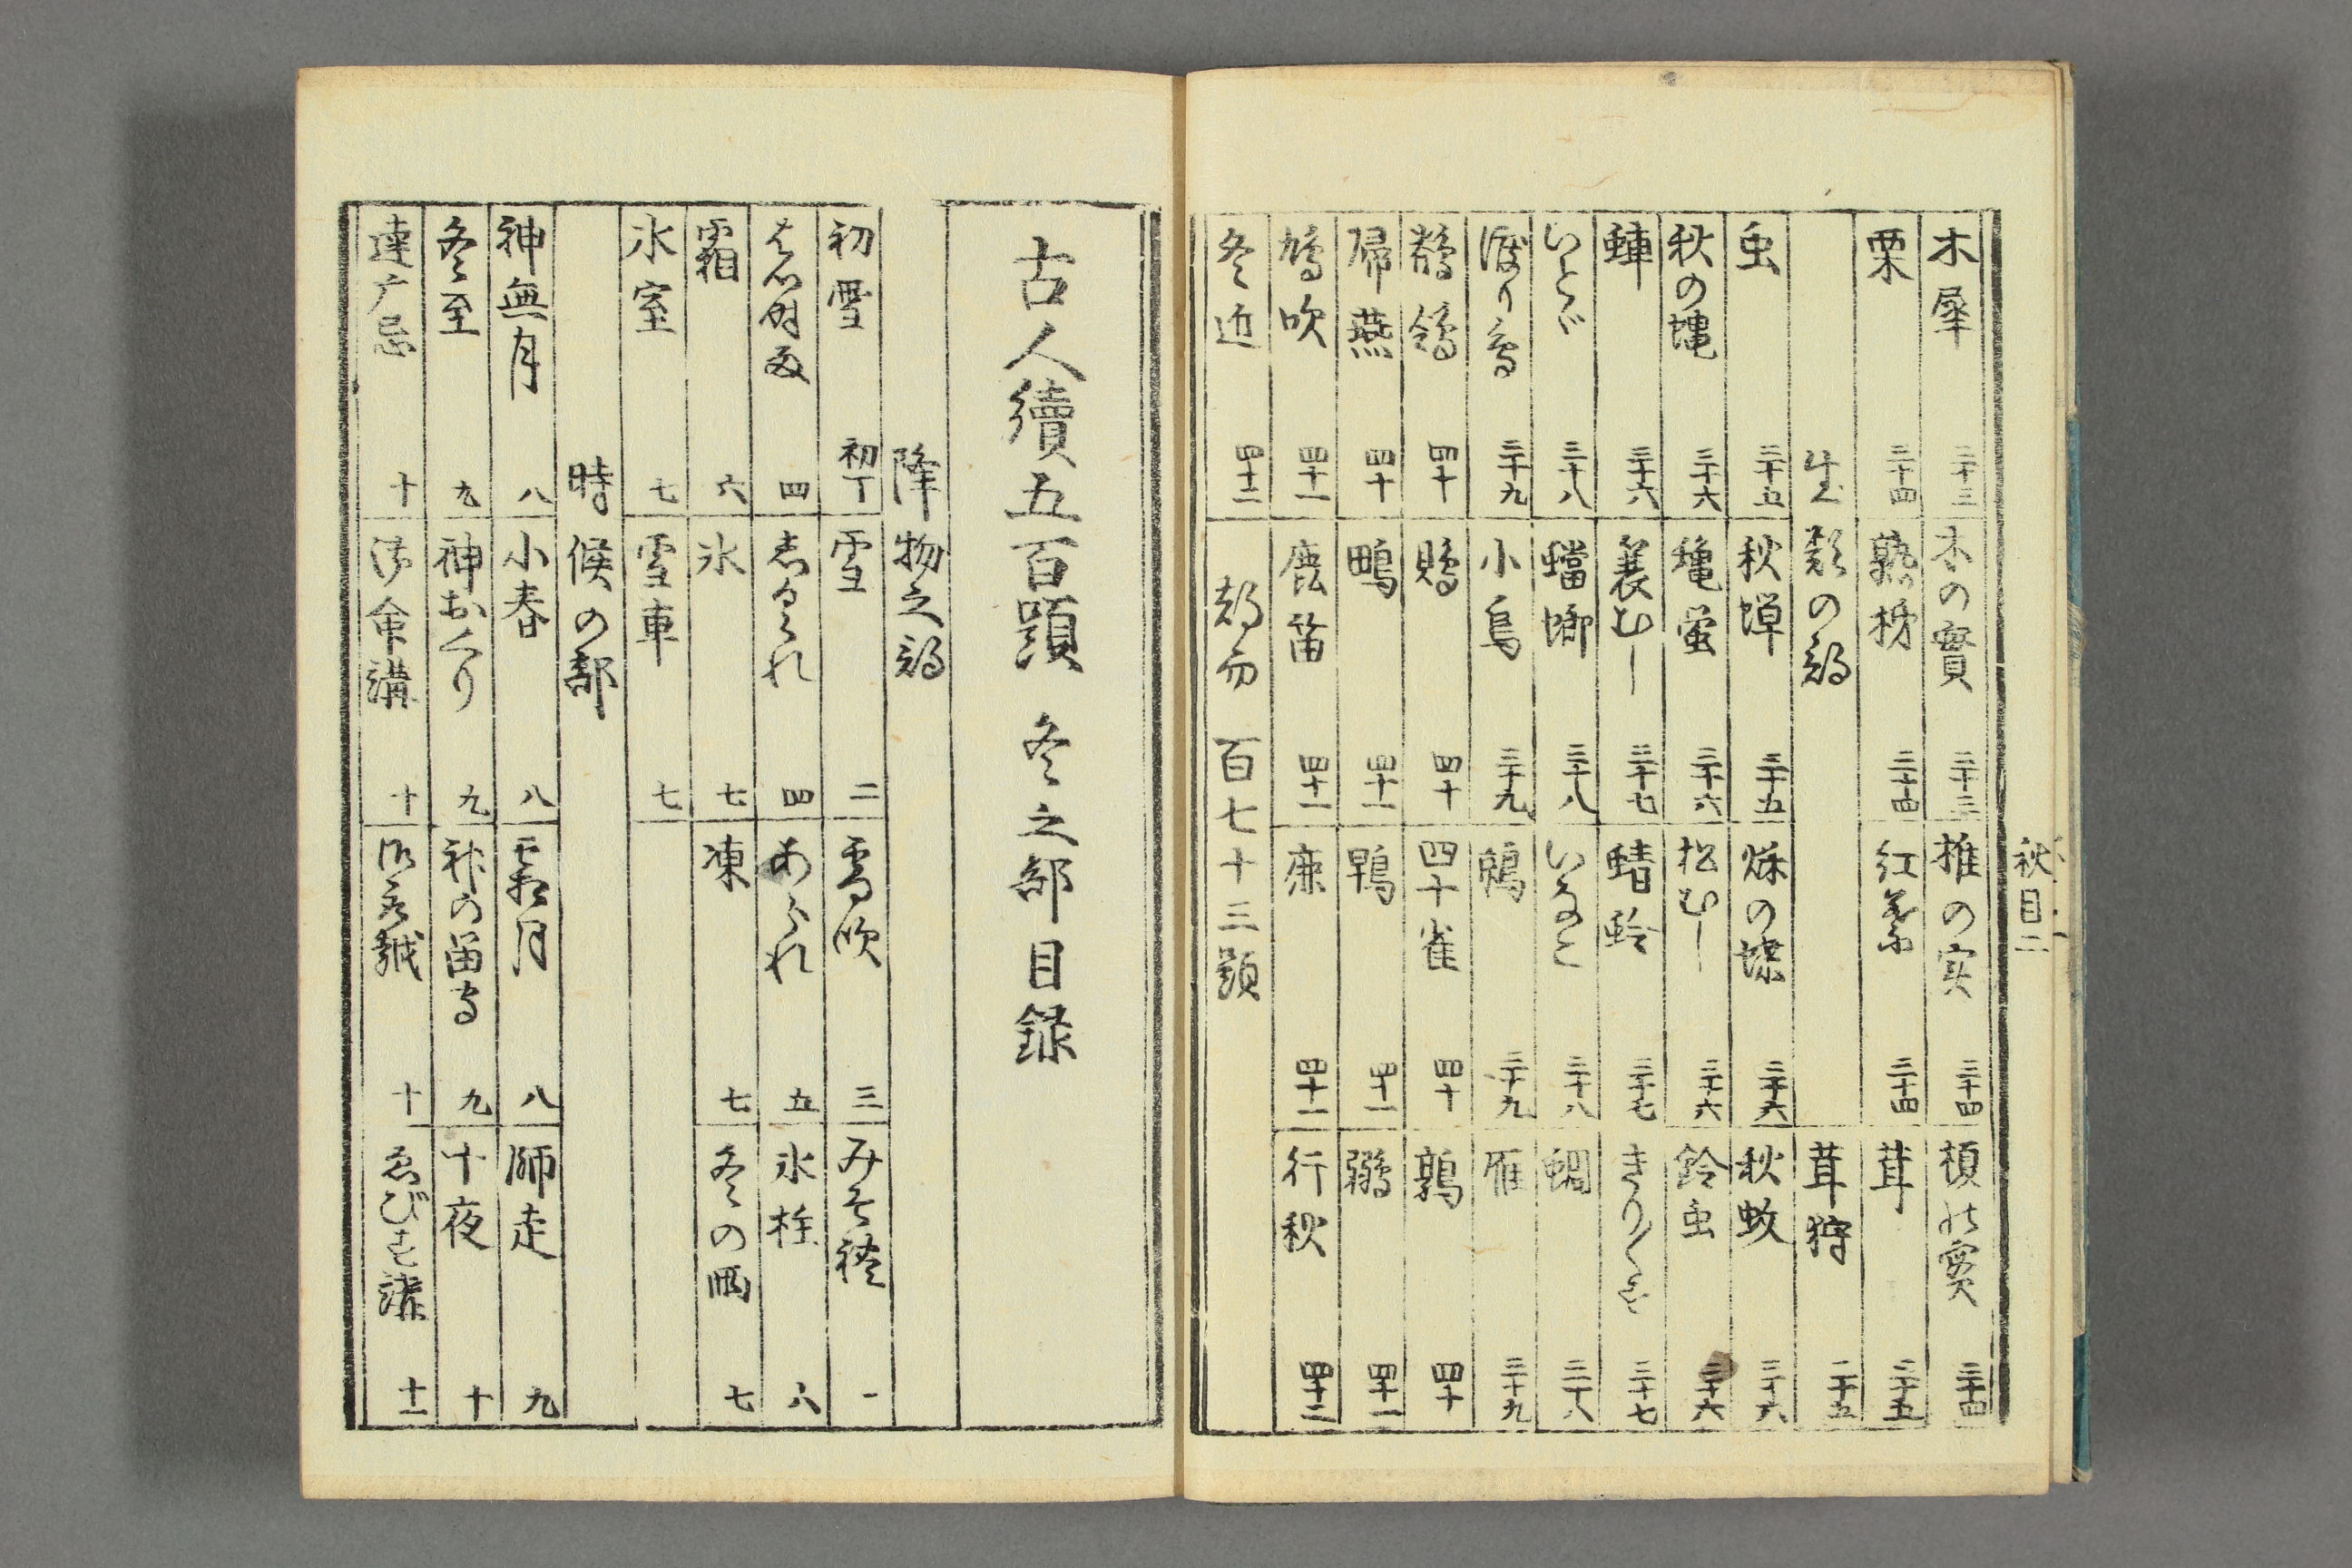 木犀 三十三 木の實 三十三 椎の実 三十四 榎の実 三十四
栗 三十四 熟柿 三十四 紅葉 三十四 茸 三十五
生類の部 茸狩 三十五
虫 三十五 秋蝉 三十五 秋の蝶 三十六 秋蚊 三十六
秋の蝿 三十六 秋蛍 三十六 松むし 三十六 鈴虫 三十六
三十六 蓑むし 三十七 蜻蛉 三十七 きり〳〵す 三十七
いとゞ 三十八 蟷螂 三十八 いなご 三十八 蜩 三十八
渡り鳥 三十九 小鳥 三十九 鵙 三十九 雁 三十九
鶺鴒 四十 四十 四十雀 四十 鶉 四十
帰燕 四十 鴫 四十一 四十一 四十一
鳩吹 四十一 鹿笛 四十一 鹿 四十一 行秋 四十二
冬近 四十二 惣而 百七十三題
秋目二
古人續五百題 冬之部目録
降物之部
初雪 初丁 雪 二 雪吹 三 みぞれ
はつ時雨 四 しぐれ 四 あられ 五 氷柱 六
霜 六 氷 七 凍 七 冬の雨 七
氷室 七 雪車 七
時候の部
神無月 八 小春 八 霜月 八 師走 九
冬至 九 神おくり 九 神の留守 九 十夜 十
達广忌 十 御命講 十 十 ゑびす講 十一